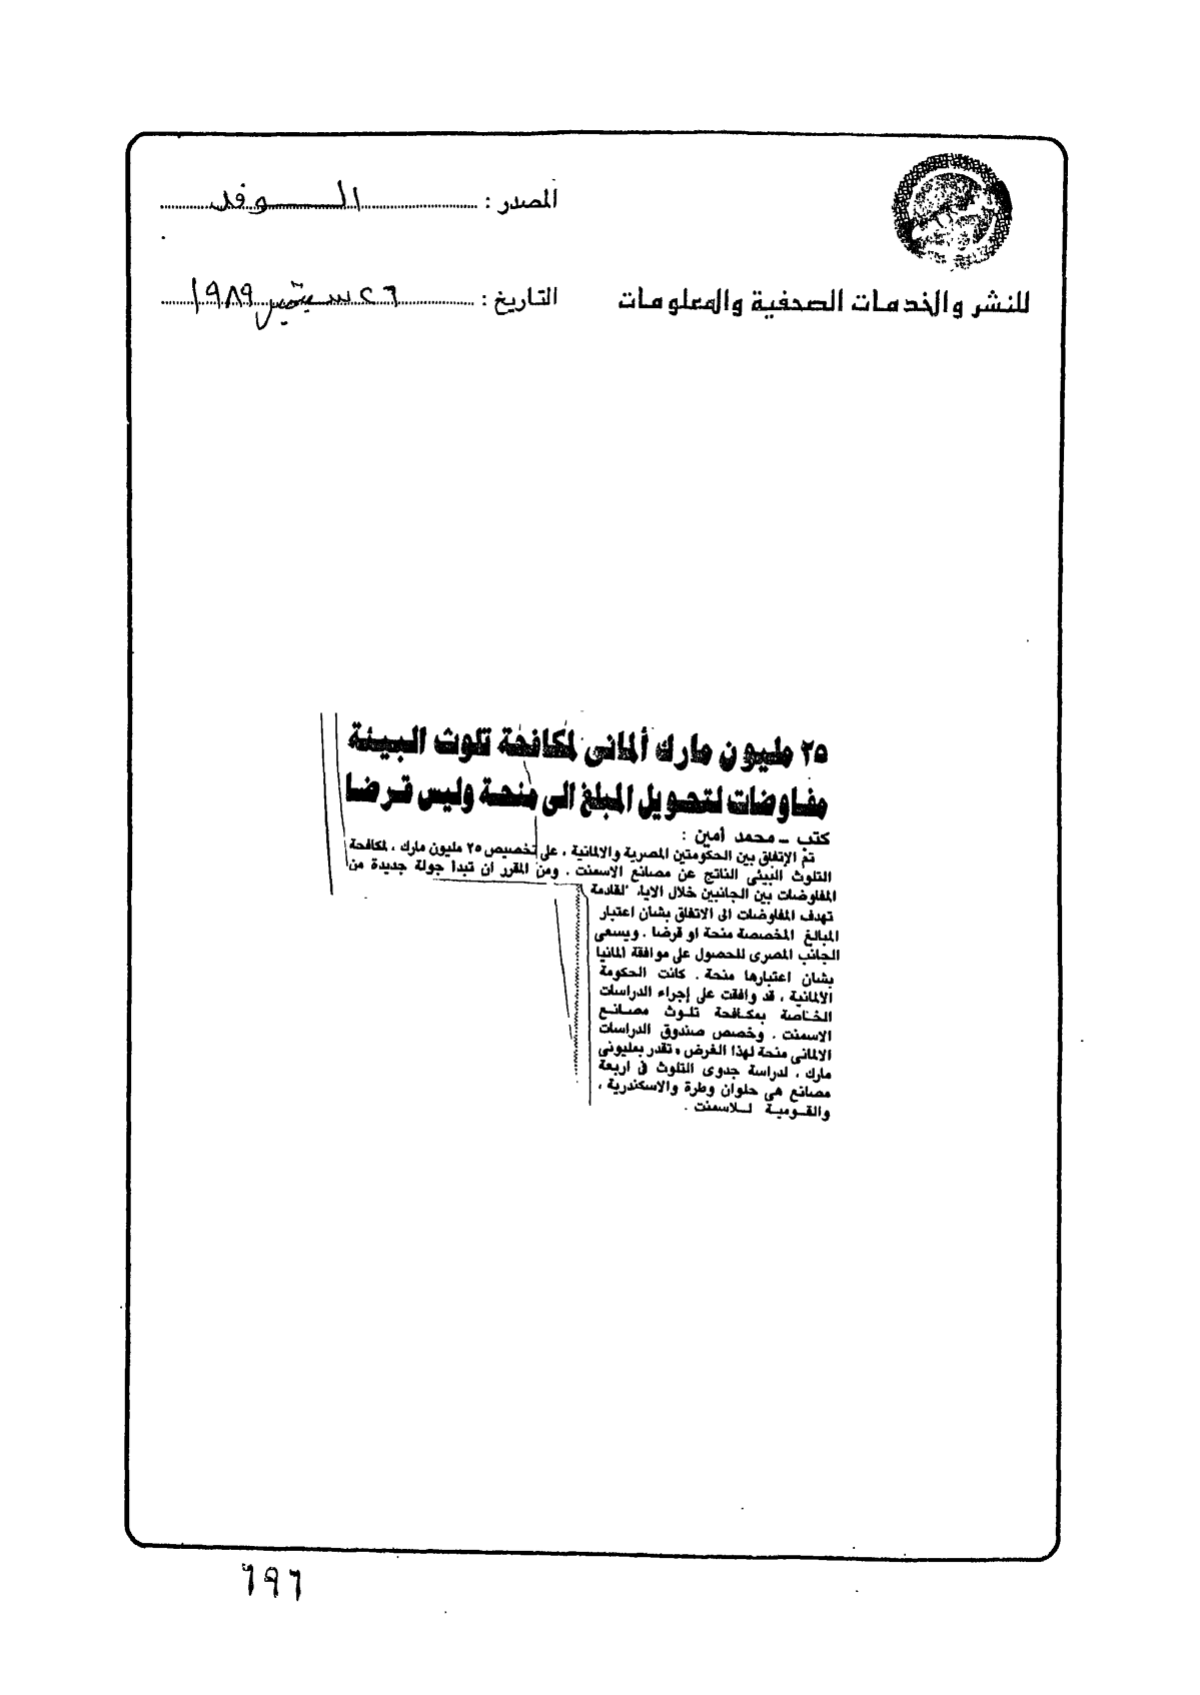 المصدر : الوفد
للنشر والخدمات الصحفية والمعلومات
التاريخ : ٢٦ سبتمبر ١٩٨٩
٢٥ مليون مارك ألمانى لمكافحة تلوث البيئة
مفاوضات لتحويل المبلغ الى منحة وليس قرضا
كتب - محمد أمين :
تم الإتفاق بين الحكومتين المصرية والالمانية ، على تخصيص ٢٥ مليون مارك ، لمكافحة
التلوث البيئى الناتج عن مصانع الاسمنت . ومن المقرر ان تبدا جولة جديدة من
المفاوضات بين الجانبين خلال الايام القادمة
تهدف المفاوضات الى الاتفاق بشان اعتبار
المبالغ المخصصة منحة او قرضا . ويسعى
الجانب المصرى للحصول على موافقة المانيا
بشان اعتبارها منحة . كانت الحكومة
الالمانية ، قد وافقت على إجراء الدراسات
الخاصة بمكافحة تلوث مصانع
الاسمنت . وخصص صندوق الدراسات
الالمانى منحة لهذا الغرض ، تقدر بمليونى
مارك ، لدراسة جدوى التلوث فى اربعة
مصانع هى حلوان وطرة والاسكندرية ،
والقومية للاسمنت .
٦٩٦